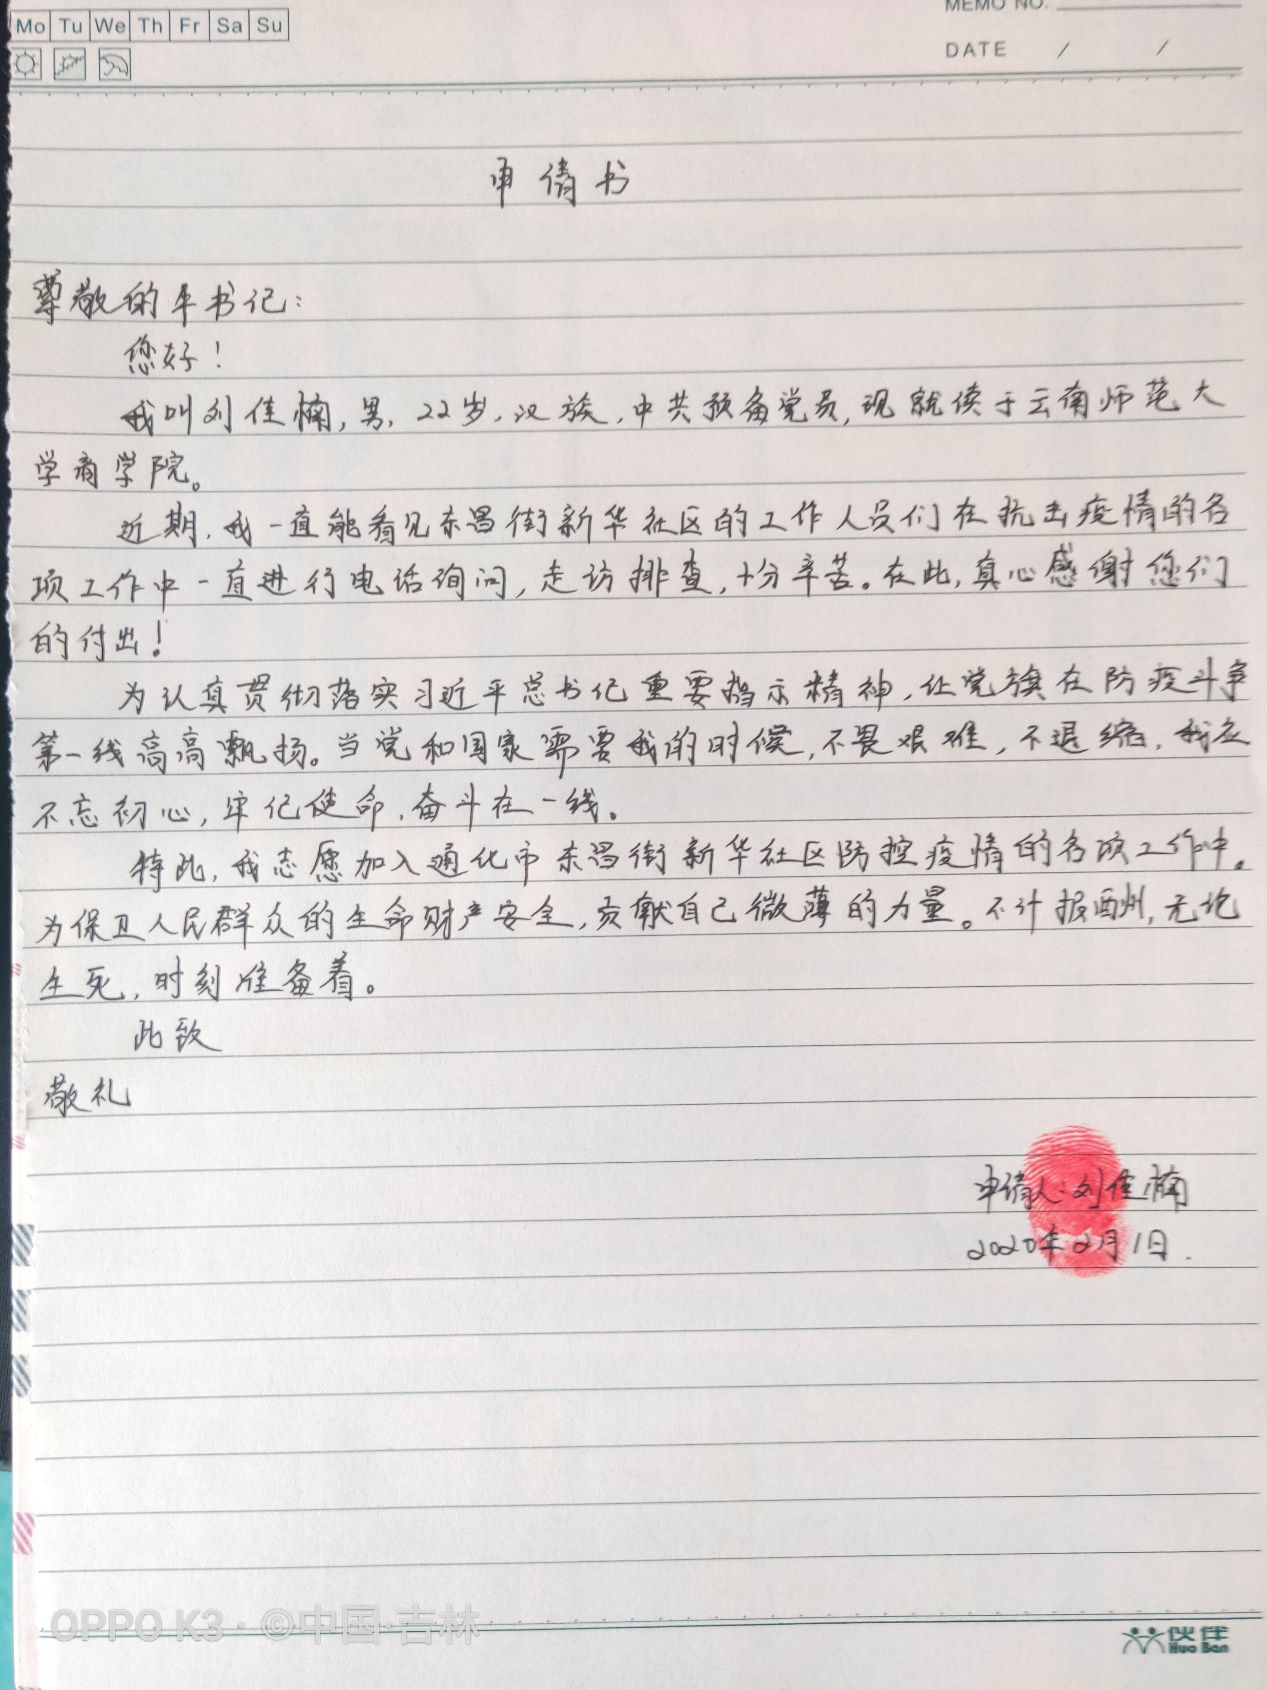 Mo Tu We Th Fr Sa Su
MEMO NO.
DATE / /
申请书
尊敬的平书记：
您好！
我叫刘佳楠，男，22岁，汉族，中共预备党员，现就读于云南师范大
学商学院。
近期，我一直能看见东昌街新华社区的工作人员们在抗击疫情的各
项工作中一直进行电话询问，走访排查，十分辛苦。在此，真心感谢您们
的付出！
为认真贯彻落实习近平总书记重要指示精神，让党旗在防疫斗争
第一线高高飘扬。当党和国家需要我的时候，不畏艰难，不退缩，我应
不忘初心，牢记使命，奋斗在一线。
特此，我志愿加入通化市东昌街新华社区防控疫情的各项工作中。
为保卫人民群众的生命财产安全，贡献自己微薄的力量。不计报酬，无论
生死，时刻准备着。
此致
敬礼
申请人：刘佳楠
2020年2月1日.
OPPO K3 · ©中国·吉林
伙伴
Huo Ban